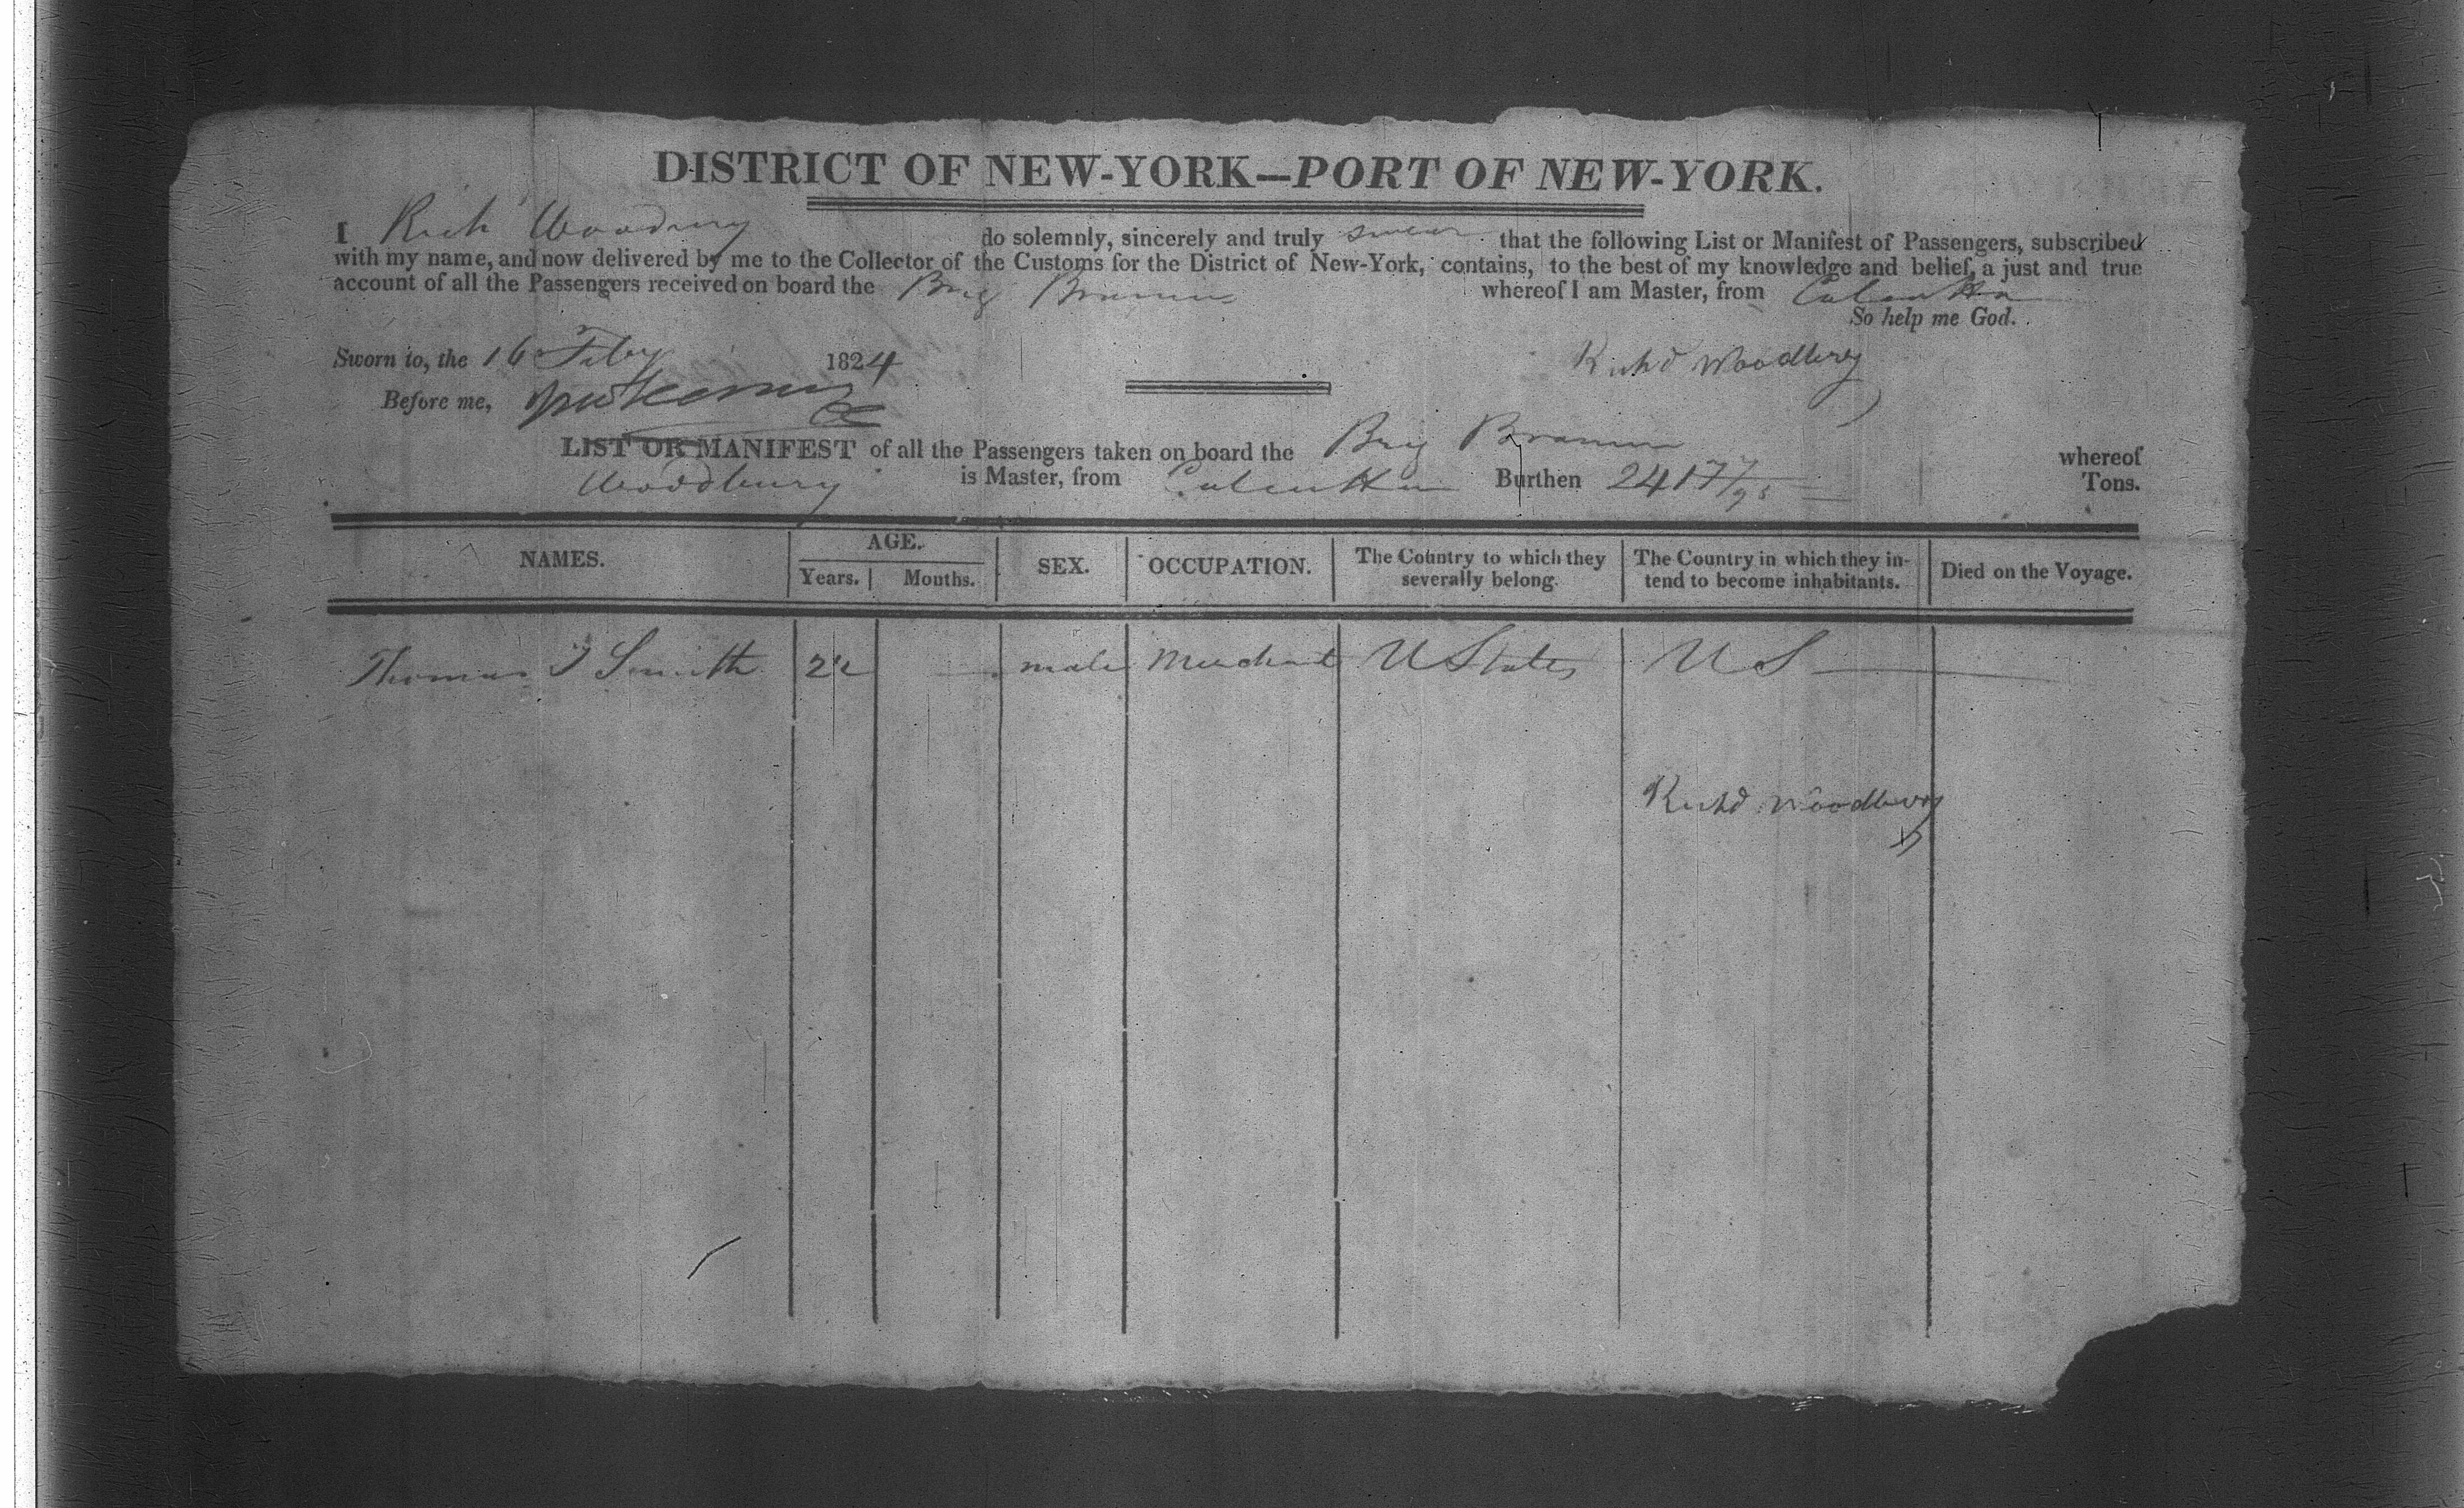 DISTRICT OF NEW-YORK—PORT OF NEW-YORK.
I Rich Woodbury do solemnly, sincerely and truly swear that the following List or Manifest of Passengers, subscribed
with my name, and now delivered by me to the Collector of the Customs for the District of New-York, contains, to the best of my knowledge and belief, a just and true
account of all the Passengers received on board the Brig whereof I am Master, from Calcutta
So help me God.
Sworn to, the 16 Feby 1824
Richd Woodbury
Before me,
LIST OR MANIFEST of all the Passengers taken on board the Brig whereof
Woodbury is Master, from Calcutta Burthen 241 77/95 Tons.
NAMES. AGE. Years. Months. SEX. OCCUPATION. The Country to which they severally belong. The Country in which they intend to become inhabitants. Died on the Voyage.
Thomas Smith 22 male Merchant U States U S
Richd Woodbury